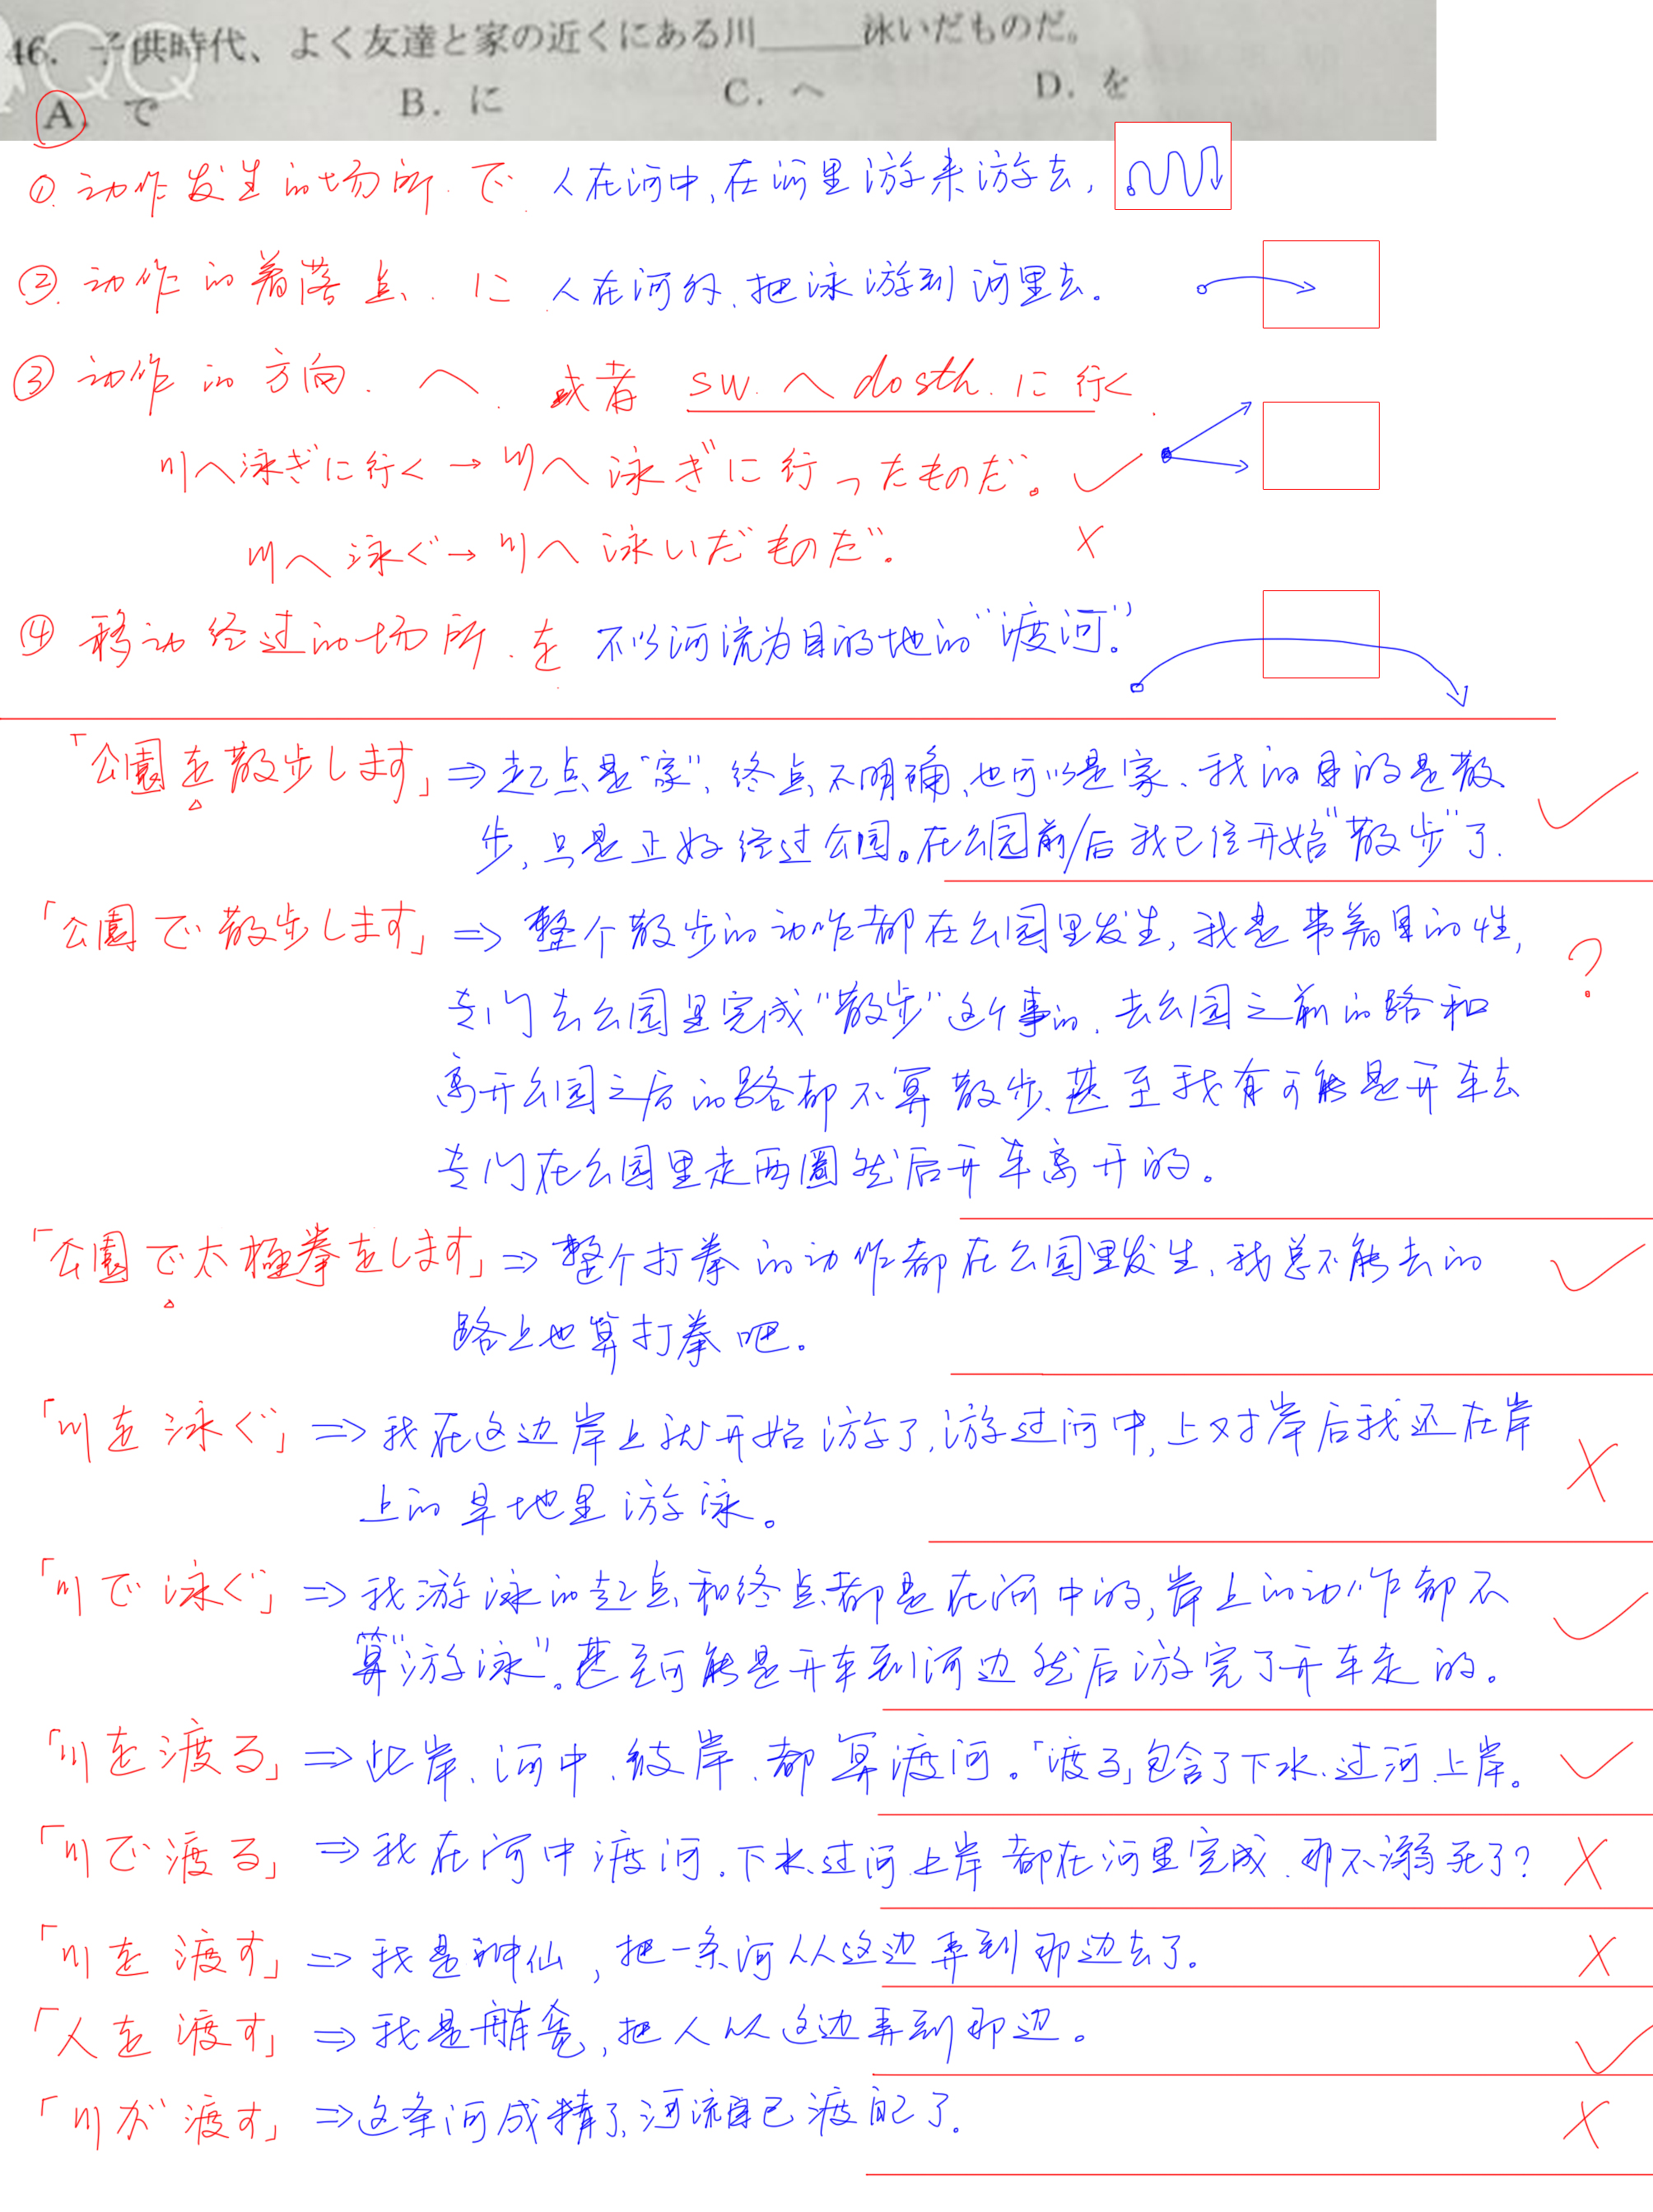 46. 子供時代、よく友達と家の近くにある川____泳いだものだ。
A. で B. に C. へ D. を
① 动作发生的场所.で. 人在河中,在河里游来游去,
② 动作的着落点.に 人在河外.把泳游到河里去.
③ 动作的方向.へ. 或者 sw.へ do sth.に行く.
川へ泳ぎに行く→川へ泳ぎに行ったものだ。✓
川へ泳ぐ→川へ泳いだものだ。×
④ 移动经过的场所.を 不以河流为目的地的“渡河”.
「公園を散歩します」⇒起点是“家”、终点不明确、也可以是家、我的目的是散
步,只是正好经过公园。在公园前/后我已经开始“散步”了. ✓
「公園で散歩します」⇒整个散步的动作都在公园里发生,我是带着目的性,
专门去公园里完成“散步”这个事的、去公园之前的路和 ?
离开公园之后的路都不算散步、甚至我有可能是开车去
专门在公园里走两圈然后开车离开的。
「公園で太極拳をします」⇒整个打拳的动作都在公园里发生、我总不能去的 ✓
路上也算打拳吧。
「川を泳ぐ」⇒我在这边岸上就开始游了,游过河中,上对岸后我还在岸
上的旱地里游泳。 ×
「川で泳ぐ」⇒我游泳的起点和终点都是在河中的,岸上的动作都不 ✓
算“游泳”。甚至可能是开车到河边然后游完了开车走的。
「川を渡る」⇒此岸、河中、彼岸、都算渡河。「渡る」包含了下水、过河、上岸。 ✓
「川で渡る」⇒我在河中渡河.下水、过河、上岸都在河里完成、那不溺死了? ×
「川を渡す」⇒我是神仙,把一条河从这边弄到那边去了. ×
「人を渡す」⇒我是船家,把人从这边弄到那边。 ✓
「川が渡す」⇒这条河成精了、河流自己渡自己了. ×